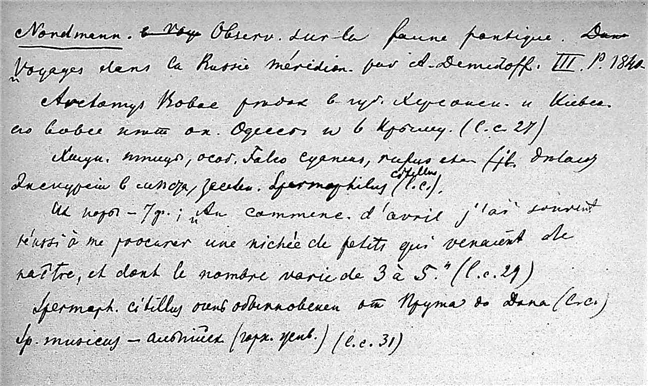 Nordmann. Observ. sur la faune pontique.
Voyages dans la Russie méridion. par A. Demidoff. III. P. 1840.
Arctomys Bobac редок в губ. Херсонск. и Киевск.
но вовсе нет ок. Одессы и в Крыму. (l.c. 27)
Хищн. птицы, особ. Falco cyaneus, rufus
Spermophilus citillus (l.c.).
7 „Au commenc. d'avril j'ai souvent
réussi à me procurer une nichée de petits qui venaient de
naître, et dont le nombre varie de 3 à 5." (l.c. 29)
Spermoph. citillus очень обыкновенен от Прута до Дона (l.c.)
Sp. musicus – (l.c. 31)